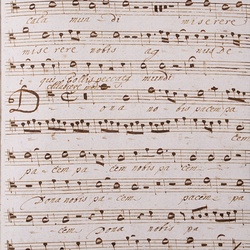 cata mundi miserere
miserere nobis agnus De
i qui tollis peccata mundi
Dona nobis pacem pa
cem
pacem pacem nobis pacem
Dona nobis pacem pacem pa
cem Dona nobis pa